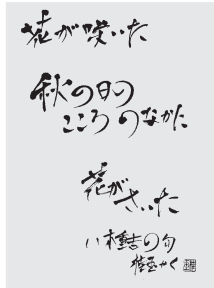 花が咲いた
秋の日の
こころのなかに
花が
さいた
八木重吉の句
かく